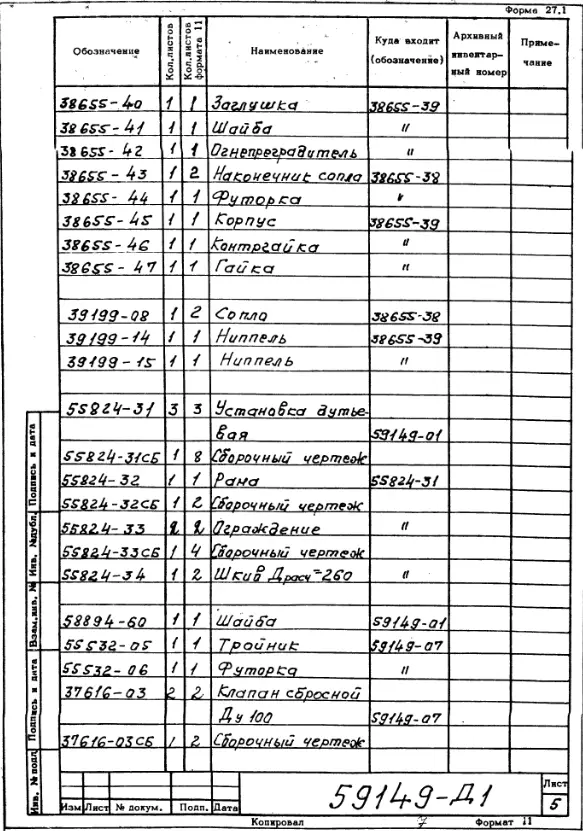 Форма 27.1
Обозначение Кол.листов Кол.листов формата 11 Наименование Куда входит (обозначение) Архивный инвентарный номер Примечание
38655-40 1 1 Заглушка 38655-39
38655-41 1 1 Шайба "
38655-42 1 1 Огнепреградитель "
38655-43 1 2 Наконечник сопла 38655-38
38655-44 1 1 Футорка "
38655-45 1 1 Корпус 38655-39
38655-46 1 1 Контргайка "
38655-47 1 1 Гайка "
39199-08 1 2 Сопло 38655-38
39199-14 1 1 Ниппель 38655-39
39199-15 1 1 Ниппель "
55824-31 3 3 Установка дутье-
вая 59149-01
55824-31СБ 1 8 Сборочный чертеж
55824-32 1 1 Рама 55824-31
55824-32СБ 1 2 Сборочный чертеж
55824-33 2 2 Ограждение "
55824-33СБ 1 4 Сборочный чертеж
55824-34 1 2 Шкив Драсч=260 "
58894-60 1 1 Шайба 59149-01
55532-05 1 1 Тройник 59149-07
55532-06 1 1 Футорка "
37616-03 2 2 Клапан сбросной
Ду 100 59149-07
37616-03СБ 1 2 Сборочный чертеж
Подпись и дата
Инв. №дубл.
Взам.инв. №
Подпись и дата
Инв. №подл
Изм Лист № докум. Подп. Дата
59149-Д1
Лист
5
Копировал 7 Формат 11